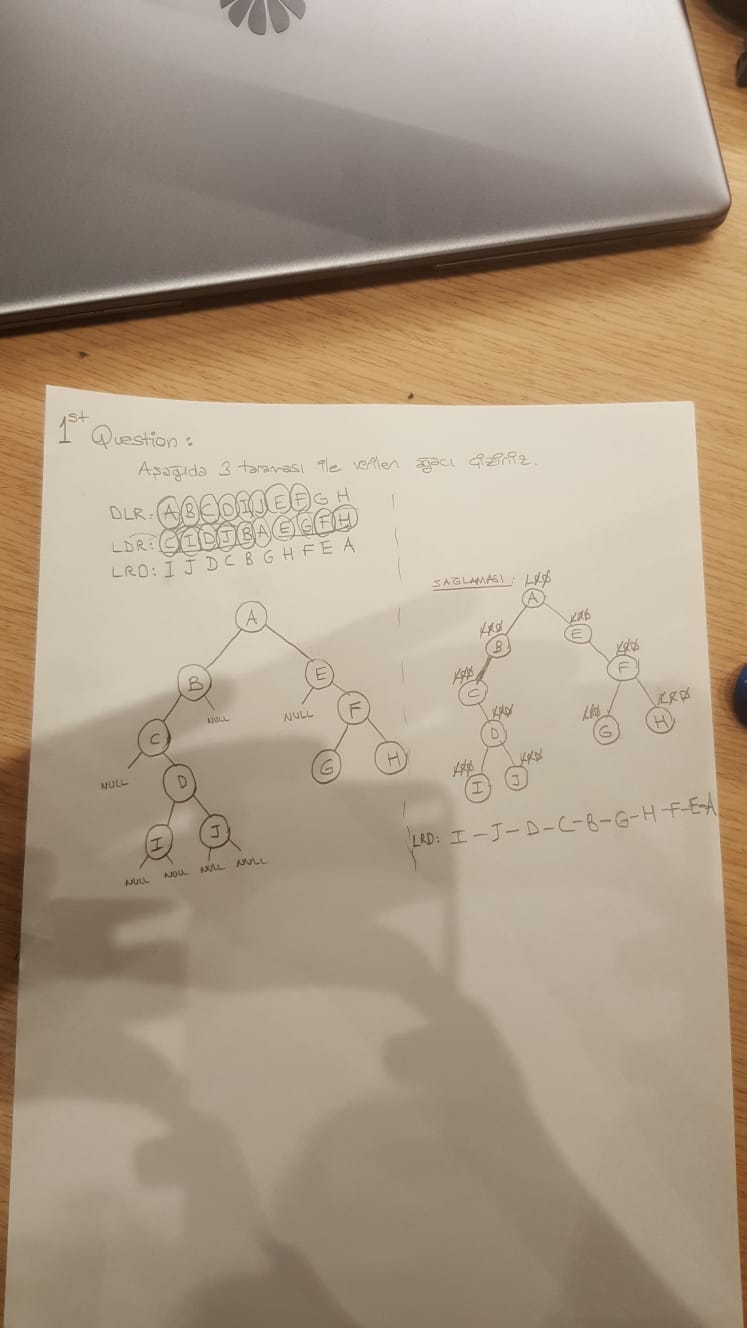 1st Question:
Aşağıda 3 taraması ile verilen ağacı çiziniz.
DLR: A B C D I J E F G H
LDR: C I D J B A E G F H
LRD: I J D C B G H F E A
A
B
E
NULL
NULL
F
C
NULL
D
G
H
I
J
NULL NULL NULL NULL
SAĞLAMASI:
LRD
A
LRD
LRD
B
E
LRD
LRD
C
F
LRD
LRD
LRD
D
G
H
LRD
LRD
I
J
LRD: I-J-D-C-B-G-H-F-E-A